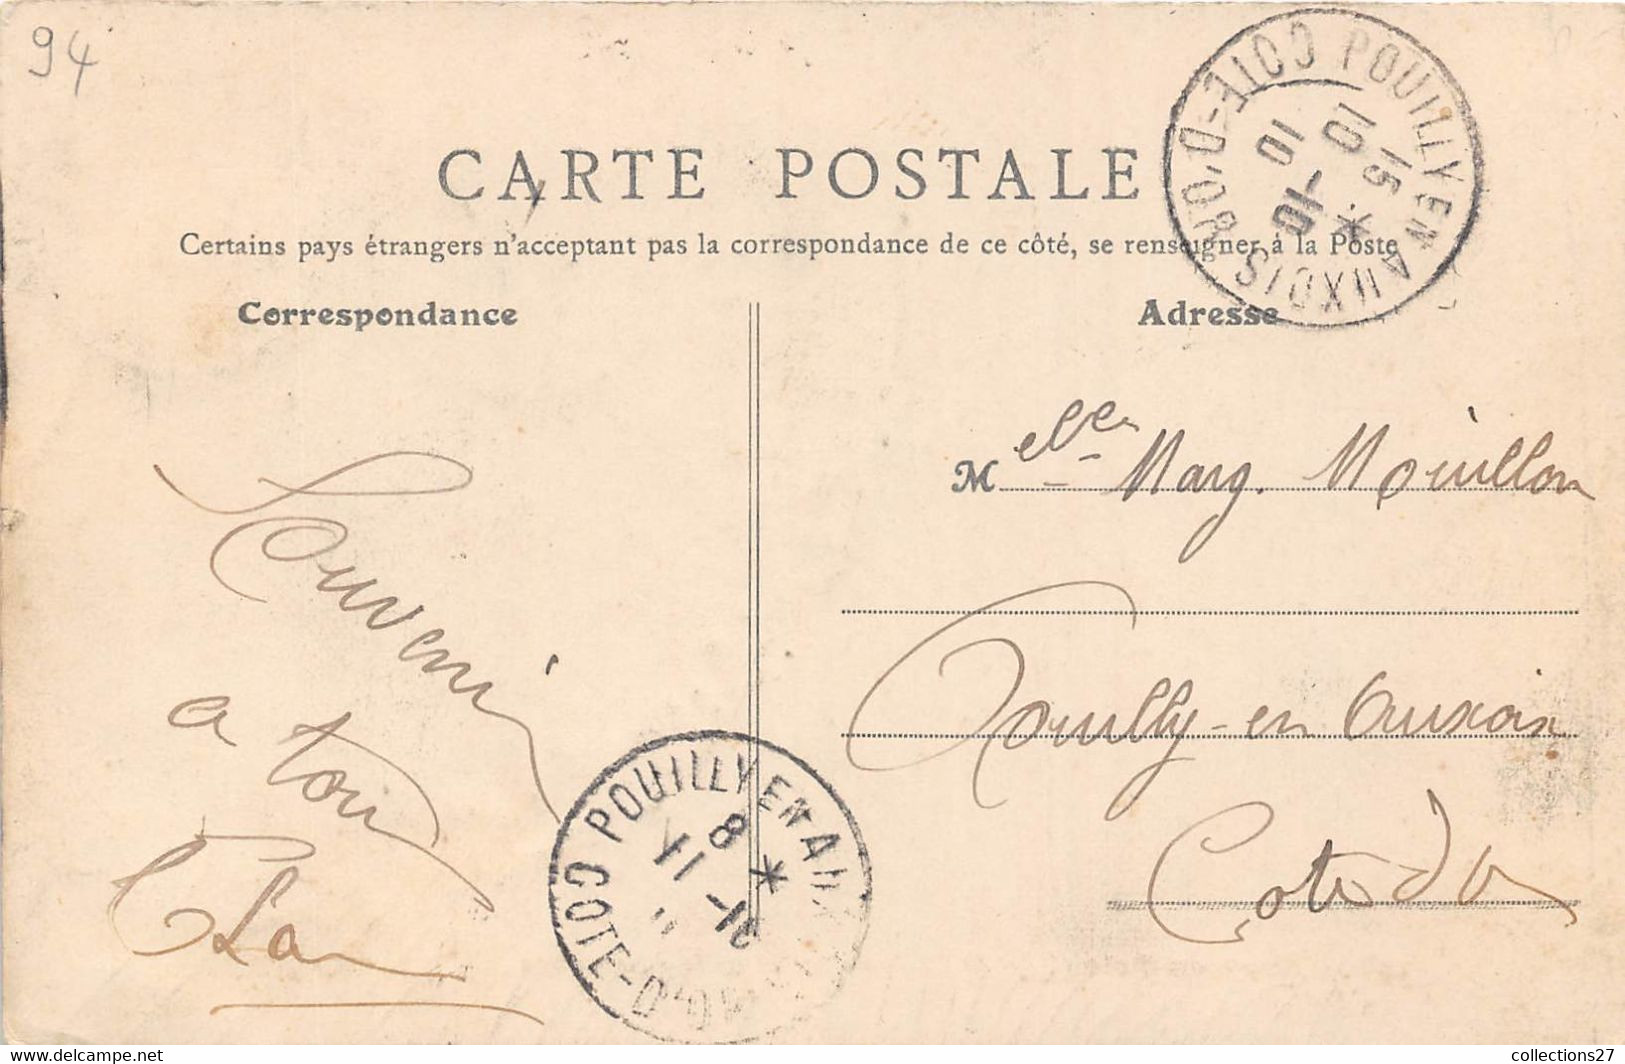 94
CARTE POSTALE
Certains pays étrangers n'acceptant pas la correspondance de ce côté, se renseigner à la Poste
Correspondance
Adresse
POUILLY EN AUXOIS
COTE-D'OR
15
10 -10
10
Melle Marg. Mouillon
Pouilly-en Auxois
Cote d'Or
Souvenir
a ton
POUILLY EN AUX
COTE-D'OR
8
11 -10
www.delcampe.net
collections27